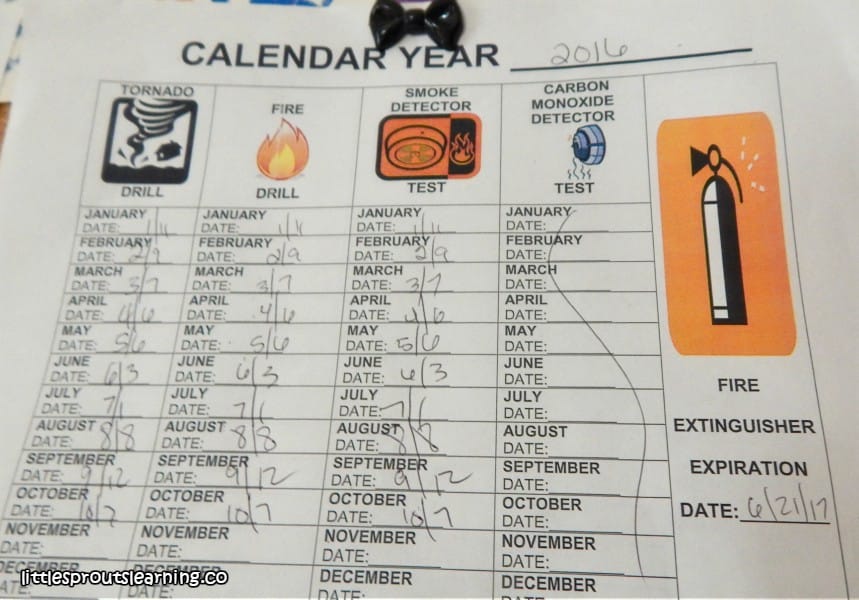 CALENDAR YEAR 2016
TORNADO
DRILL
FIRE
DRILL
SMOKE
DETECTOR
TEST
CARBON
MONOXIDE
DETECTOR
TEST
JANUARY JANUARY JANUARY JANUARY
DATE: 1/11 DATE: 1/11 DATE: 1/11 DATE:
FEBRUARY FEBRUARY FEBRUARY FEBRUARY
DATE: 2/9 DATE: 2/9 DATE: 2/9 DATE:
MARCH MARCH MARCH MARCH
DATE: 3/7 DATE: 3/7 DATE: 3/7 DATE:
APRIL APRIL APRIL APRIL
DATE: 4/6 DATE: 4/6 DATE: 4/6 DATE:
MAY MAY MAY MAY
DATE: 5/6 DATE: 5/6 DATE: 5/6 DATE:
JUNE JUNE JUNE JUNE
DATE: 6/3 DATE: 6/3 DATE: 6/3 DATE:
JULY JULY JULY JULY
DATE: 7/1 DATE: 7/1 DATE: 7/1 DATE:
AUGUST AUGUST AUGUST AUGUST
DATE: 8/8 DATE: 8/8 DATE: 8/8 DATE:
SEPTEMBER SEPTEMBER SEPTEMBER SEPTEMBER
DATE: 9/12 DATE: 9/12 DATE: 9/12 DATE:
OCTOBER OCTOBER OCTOBER OCTOBER
DATE: 10/7 DATE: 10/7 DATE: 10/7 DATE:
NOVEMBER NOVEMBER NOVEMBER NOVEMBER
DATE: DATE: DATE: DATE:
DECEMBER DECEMBER DECEMBER DECEMBER
FIRE
EXTINGUISHER
EXPIRATION
DATE: 6/21/17
littlesproutslearning.co